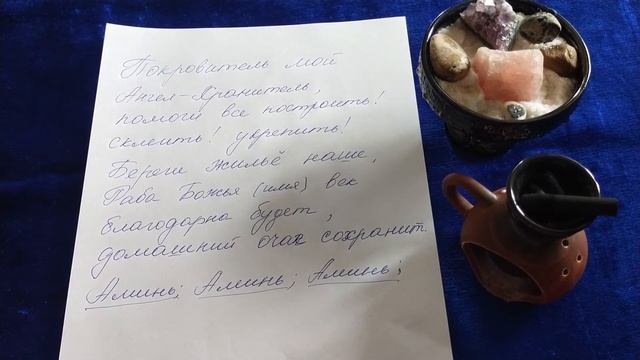 Покровитель мой
Ангел-Хранитель,
помоги все построить!
склеить! укрепить!
Береги жильё наше,
Раба Божья (имя) век
благодарна будет,
домашний очаг сохранит
Аминь; Аминь; Аминь;